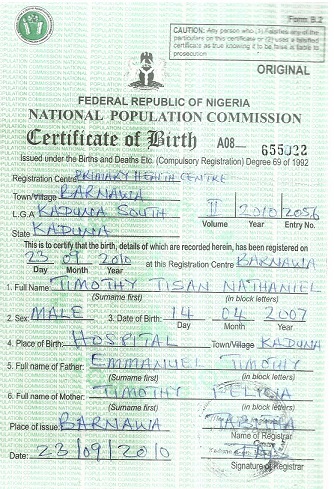 Form B.2
CAUTION: Any person who (1) Falsifies any of the
particulars on this certificate or (2) uses a falsified
certificate as true knowing it to be false is liable to
prosecution
ORIGINAL
FEDERAL REPUBLIC OF NIGERIA
NATIONAL POPULATION COMMISSION
Certificate of Birth A08— 655922
Issued under the Births and Deaths Etc. (Compulsory Registration) Degree 69 of 1992
Registration Centre PRIMARY HEALTH CENTRE
Town/Village BARNAWA
L.G.A KADUNA SOUTH II 2010 2056
Volume Year Entry No.
State KADUNA
This is to certify that the birth, details of which are recorded herein, has been registered on
23 09 2010 at this Registration Centre BARNAWA
Day Month Year
1. Full Name: TIMOTHY TISAN NATHANIEL
(Surname first) (in block letters)
2. Sex: MALE 3. Date of Birth: 14 04 2007
Day Month Year
4. Place of Birth: HOSPITAL Town/Village KADUNA
5. Full name of Father: EMMANUEL TIMOTHY
(Surname first) (in block letters)
6. Full name of Mother: TIMOTHY
(Surname first) (in block letters)
Place of issue: BARNAWA TABITHA
Name of Registrar
Date: 23/09/2010
Signature of Registrar